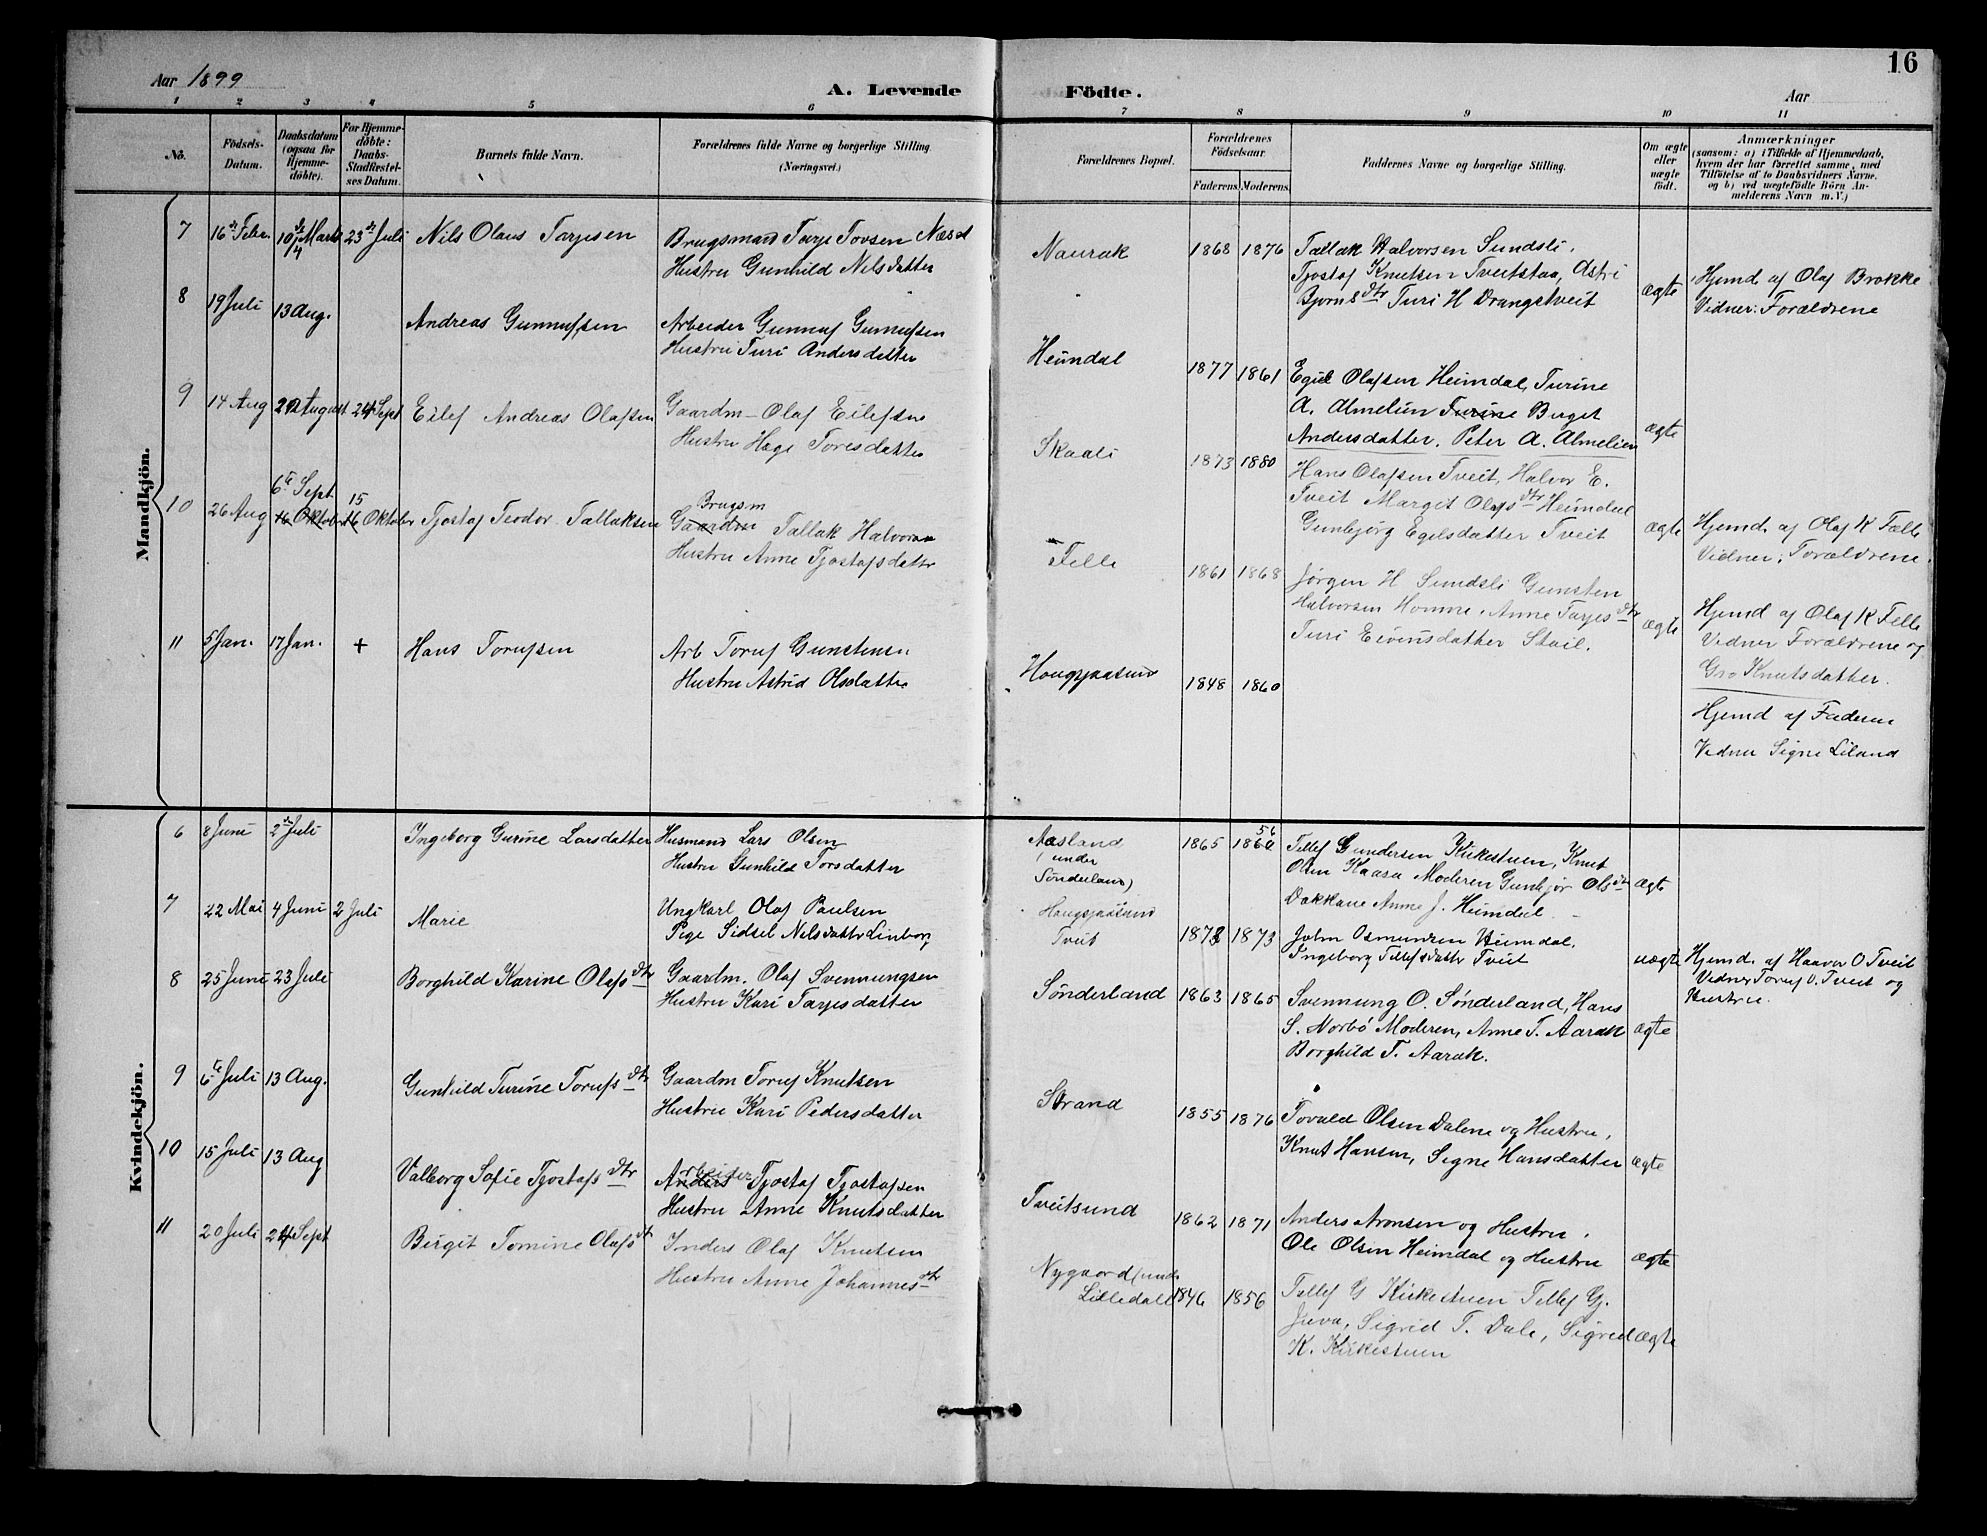 16
Aar 1899
A. Levende
Födte.
Aar
1 2 3 4 5 6 7 8 9 10 11
No.
Födsels-
Datum.
Daabsdatum
(ogsaa for
Hjemme-
döbte).
For Hjemme-
döbte:
Daabs-
Stadfæstel-
ses Datum.
Barnets fulde Navn.
Forældrenes fulde Navne og borgerlige Stilling.
(Næringsvei.)
Forældrenes Bopæl.
Forældrenes
Födselsaar.
Faderens. Moderens.
Faddernes Navne og borgerlige Stilling.
Om ægte
eller
uægte
födt.
Anmærkninger
(saasom: a) i Tilfælde af Hjemmedaab,
hvem der har forrettet samme, med
Tilföielse af to Daabsvidners Navne,
og b) ved uægtefödte Börn An-
melderens Navn m. V.)
Mandkjön.
7 16de Febr. 10/4 Marts 23de Juli Nils Olaus Tarjesen
Brugsmand Tarje Tovsen Næset
Hustru Gunhild Nilsdatter
Naurak 1868 1876
Tallak Halvorsen Sundsli,
Tjostof Knutsen Tveitstaa, Astri
Bjørnsdtr Turi H Drangstveit
ægte
Hjemd. af Olaf Brokke
Vidner: Forældrene
8 19 Juli 13 Aug. Andreas Gunnufsen
Arbeider Gunnuf Gunnufsen
Hustru Turi Andersdatter
Heimdal 1877 1861
Egil Olafsen Heimdal, Turine
A. Almelien Turine Birget
Andersdatter, Peter A. Almelien
ægte
9 14 Aug 29 August 24 Sept Eilef Andreas Olafsen
Gaardm- Olaf Eilefsen
Hustru Hæge Toresdatter
Skaali 1873 1880
Hans Olafsen Tveit, Halvor E.
Tveit Margit Olafsdtr Heimdal
Gunbjørg Egelsdatter Tveit
ægte
Hjemd. af Olaf K Felle
Vidner; Forældrene.
10 26 Aug 6te Sept 16 Oktober 15 16 Oktober Tjostof Teodor Tallaksen
Brugsm
Gaardm Tallak Halvorsen
Hustru Anne Tjostofsdatter
Felle 1861 1868
Jørgen H Sundsli Gunsten
Halvorsen Homme, Anne Tarjesdtr
Turi Eivensdatter Skoil.
ægte
Hjemd af Olaf K Felle
Vidner Forældrene og
Gro Knutsdatter.
11 5 Jan. 17 Jan. + Hans Torufsen
Arb Toruf Gunstensen
Hustru Astrid Olsdatter
Hougsjaasund 1848 1860
Hjemd af Faderen
Vidner Signe Liland
Kvindekjön.
6 8 Juni 2den Juli Ingeborg Gurine Larsdatter
Husmand Lars Olsen
Hustru Gunhild Torsdatter
Aasland
(under
Sønderland)
1865 56 1860
Tellef Gundersen Kirkestuen, Knut
Olsen Kaasa Moderen Gunbjør Olsdtr
Dokkane Anne J. Heimdal
ægte
7 22 Mai 4 Juni 2 Juli Marie
Ungkarl Olaf Paulsen
Pige Sidsel Nilsdatter Linborg
Hougsjaasund
Tveit
1873 1873
John Osmundsen Heimdal,
Ingeborg Tellefsdatter Tveit
uægte
Hjemd. af Haaver O Tveit
Vidner Toruf O. Tveit og
Hustru.
8 25 Juni 23 Juli Borghild Karine Olafsdtr
Gaardm. Olaf Svennungsen
Hustru Kari Tarjesdatter
Sønderland 1863 1865
Svennung O. Sønderland, Hans
S. Norbø Moderen, Anne T. Aarak
Borghild T. Aarak.
ægte
9 6te Juli 13 Aug. Gunhild Turine Torufsdtr
Gaardm Toruf Knutsen
Hustru Kari Pedersdatter
Strand 1855 1876
Tovald Olsen Dalene og Hustru,
Knut Hansen, Signe Hansdatter
ægte
10 15 Juli 13 Aug Valborg Sofie Tjostofsdtr
Arbeider Tjostof Tjostofsen
Hustru Anne Knutsdatter
Tveitsund 1862 1871
Anders Aronsen og Hustru,
Ole Olsen Heimdal og Hustru
ægte
11 20 Juli 24 Sept Birgit Tomine Olafsdt
Inders Olaf Knutsen
Hustru Anne Johannesdtr
Nygaard (und.
Lilledal) 1846 1856
Tellef G Kirkestuen Tellef G.
Juva, Sigrid T. Dale, Sigrid
K. Kirkestuen
ægte